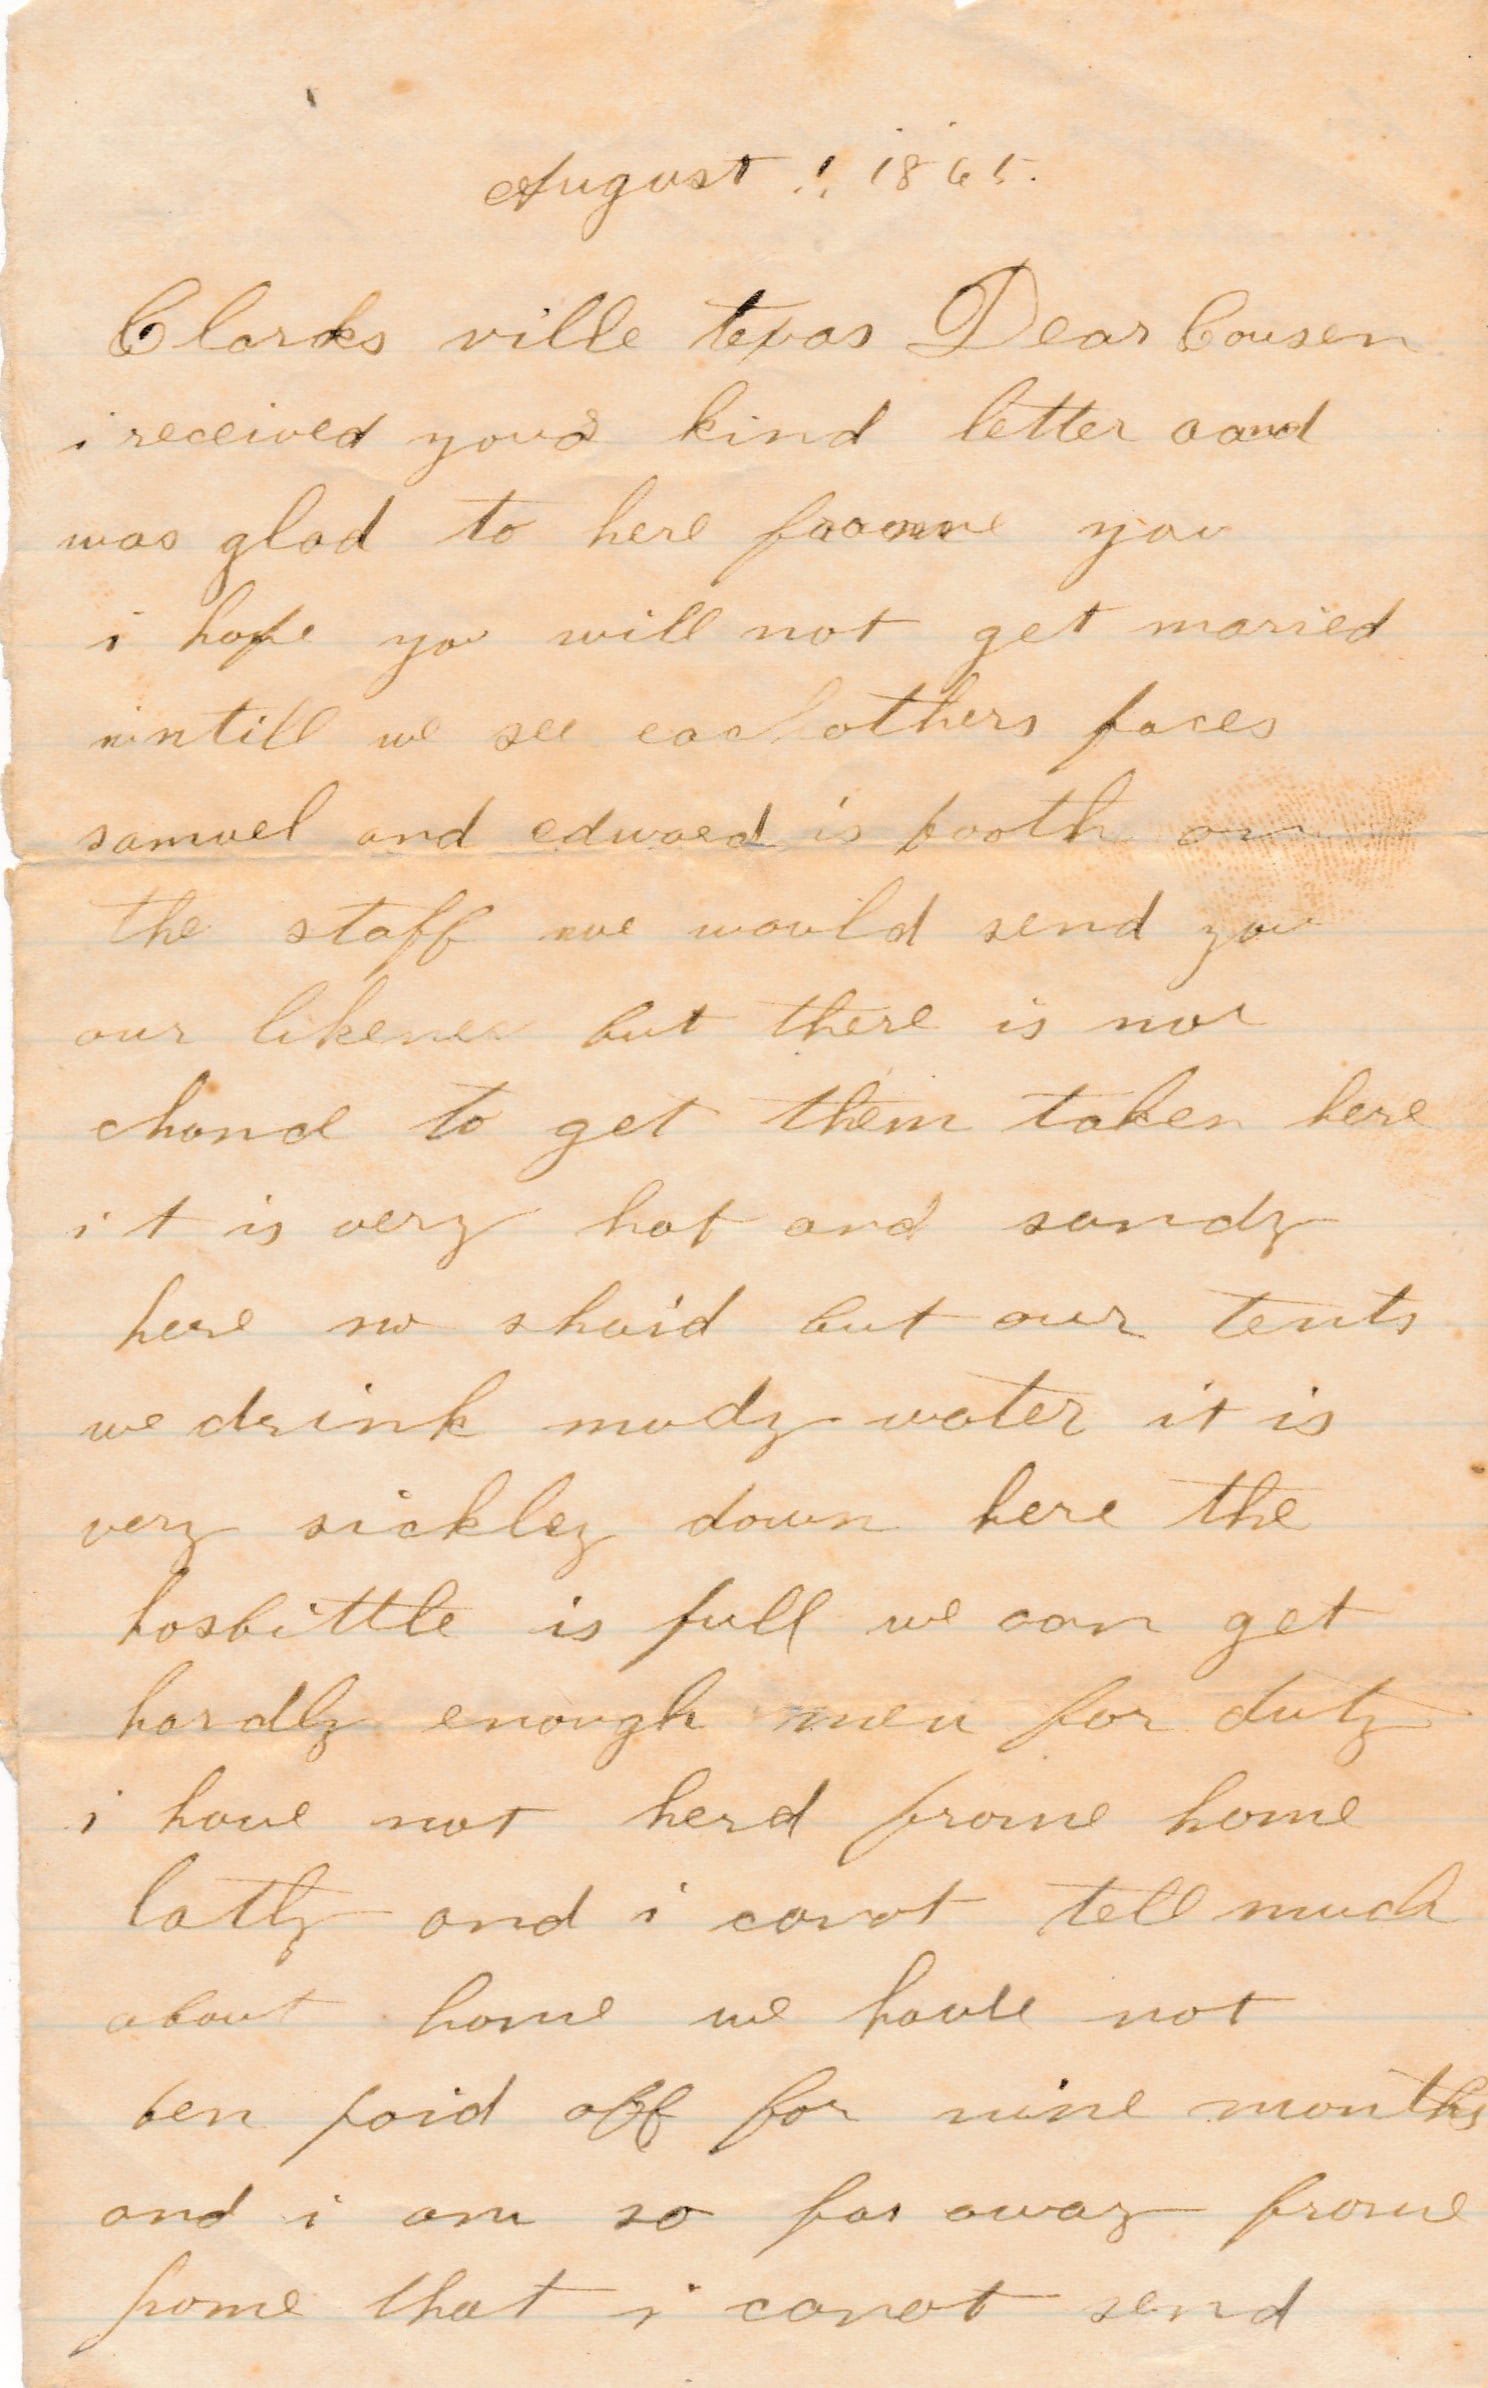 August 1 1865.
Clarks ville texas Dear Cousen
i received your kind letter aand
was glad to here froome you
i hope you will not get maried
untill we see eachothers faces
samuel and edwaed is booth on
the staff we would send you
our likenes but there is no
chance to get them taken here
it is very hot and sandy
here no shaid but our tents
we drink mudy water it is
very sickley down here the
hosbittle is full we can get
hardly enough men for duty
i have not herd frome home
latly and i canot tell much
about home we have not
ben paid off for nine months
and i am so far away frome
home that i canot send